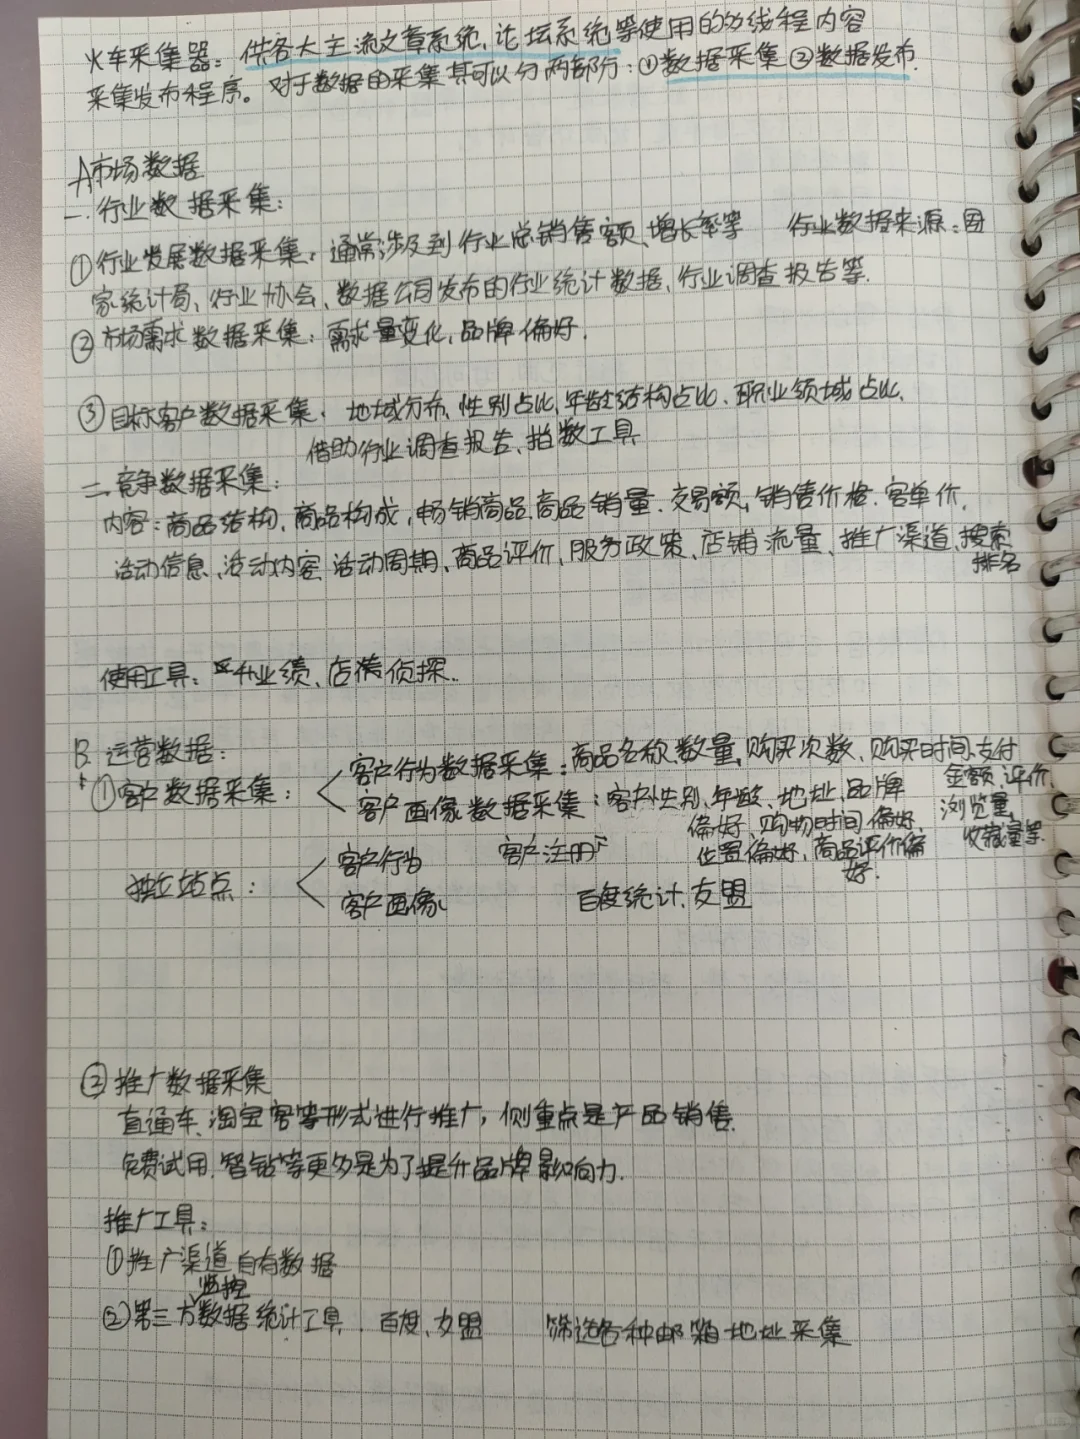 火车采集器：供各大主流文章系统、论坛系统等使用的多线程内容
采集发布程序。对于数据的采集其可以分两部分：①数据采集②数据发布.
A市场数据
一.行业数据采集：
①行业发展数据采集：通常涉及到行业总销售额、增长率等 行业数据来源：国
家统计局、行业协会、数据公司发布的行业统计数据、行业调查报告等.
②市场需求数据采集：需求量变化、品牌偏好.
③目标客户数据采集：地域分布、性别占比、年龄结构占比、职业领域占比、
借助行业调查报告、指数工具
二.竞争数据采集：
内容：商品结构、商品构成、畅销商品、商品销量、交易额、销售价格、客单价、
活动信息、活动内容、活动周期、商品评价、服务政策、店铺流量、推广渠道、搜索
排名
使用工具： 升业绩、店 侦探.
B.运营数据：
①客户数据采集： 客户行为数据采集：商品名称、数量、购买次数、购买时间、支付
金额、评价、
浏览量、
收藏量等.
客户画像数据采集：客户性别、年龄、地址、品牌
偏好、购物时间偏好、
位置偏好、商品评价偏
好.
独立站点： 客户行为 客户注册
客户画像 百度统计、友盟
②推广数据采集
直通车、淘宝客等形式进行推广，侧重点是产品销售.
免费试用、智钻等更多是为了提升品牌影响力.
推广工具：
①推广渠道自有数据
监控
②第三方数据统计工具. 百度、友盟 筛选各种邮箱地址采集